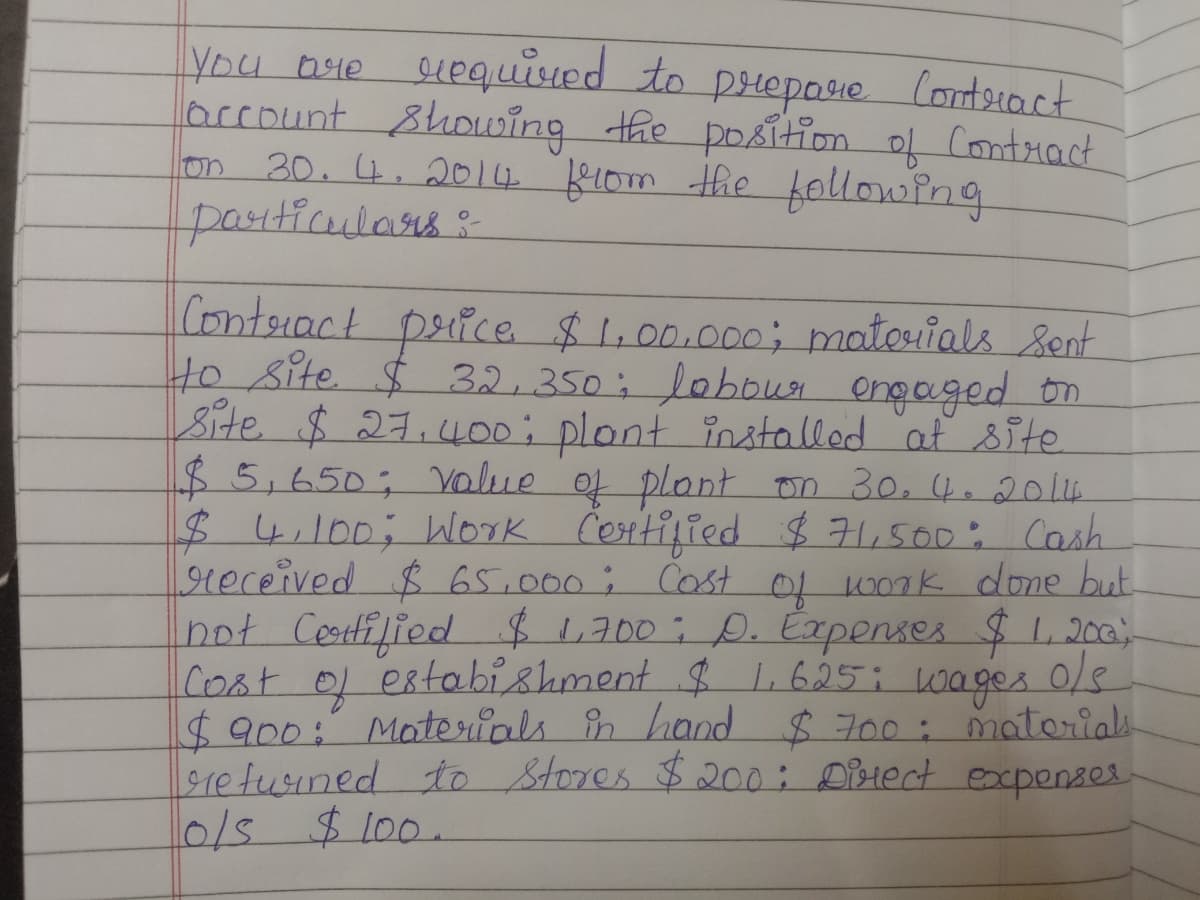 You are required to prepare Contract
account showing the position of Contract
on 30. 4. 2014 from the following
particulars :-
Contract price $ 1,00,000; materials sent
to site $ 32,350; labour engaged on
site $ 27,400; plant installed at site
$ 5,650; Value of plant on 30. 4. 2014
$ 4,100; Work Certified $ 71,500; Cash
received $ 65,000; Cost of work done but
not Certified $ 1,700; D. Expenses $ 1,200;
Cost of estabishment $ 1,625; wages o/s
$ 900; Materials in hand $ 700; materials
returned to Stores $ 200; Direct expenses
o/s $ 100.